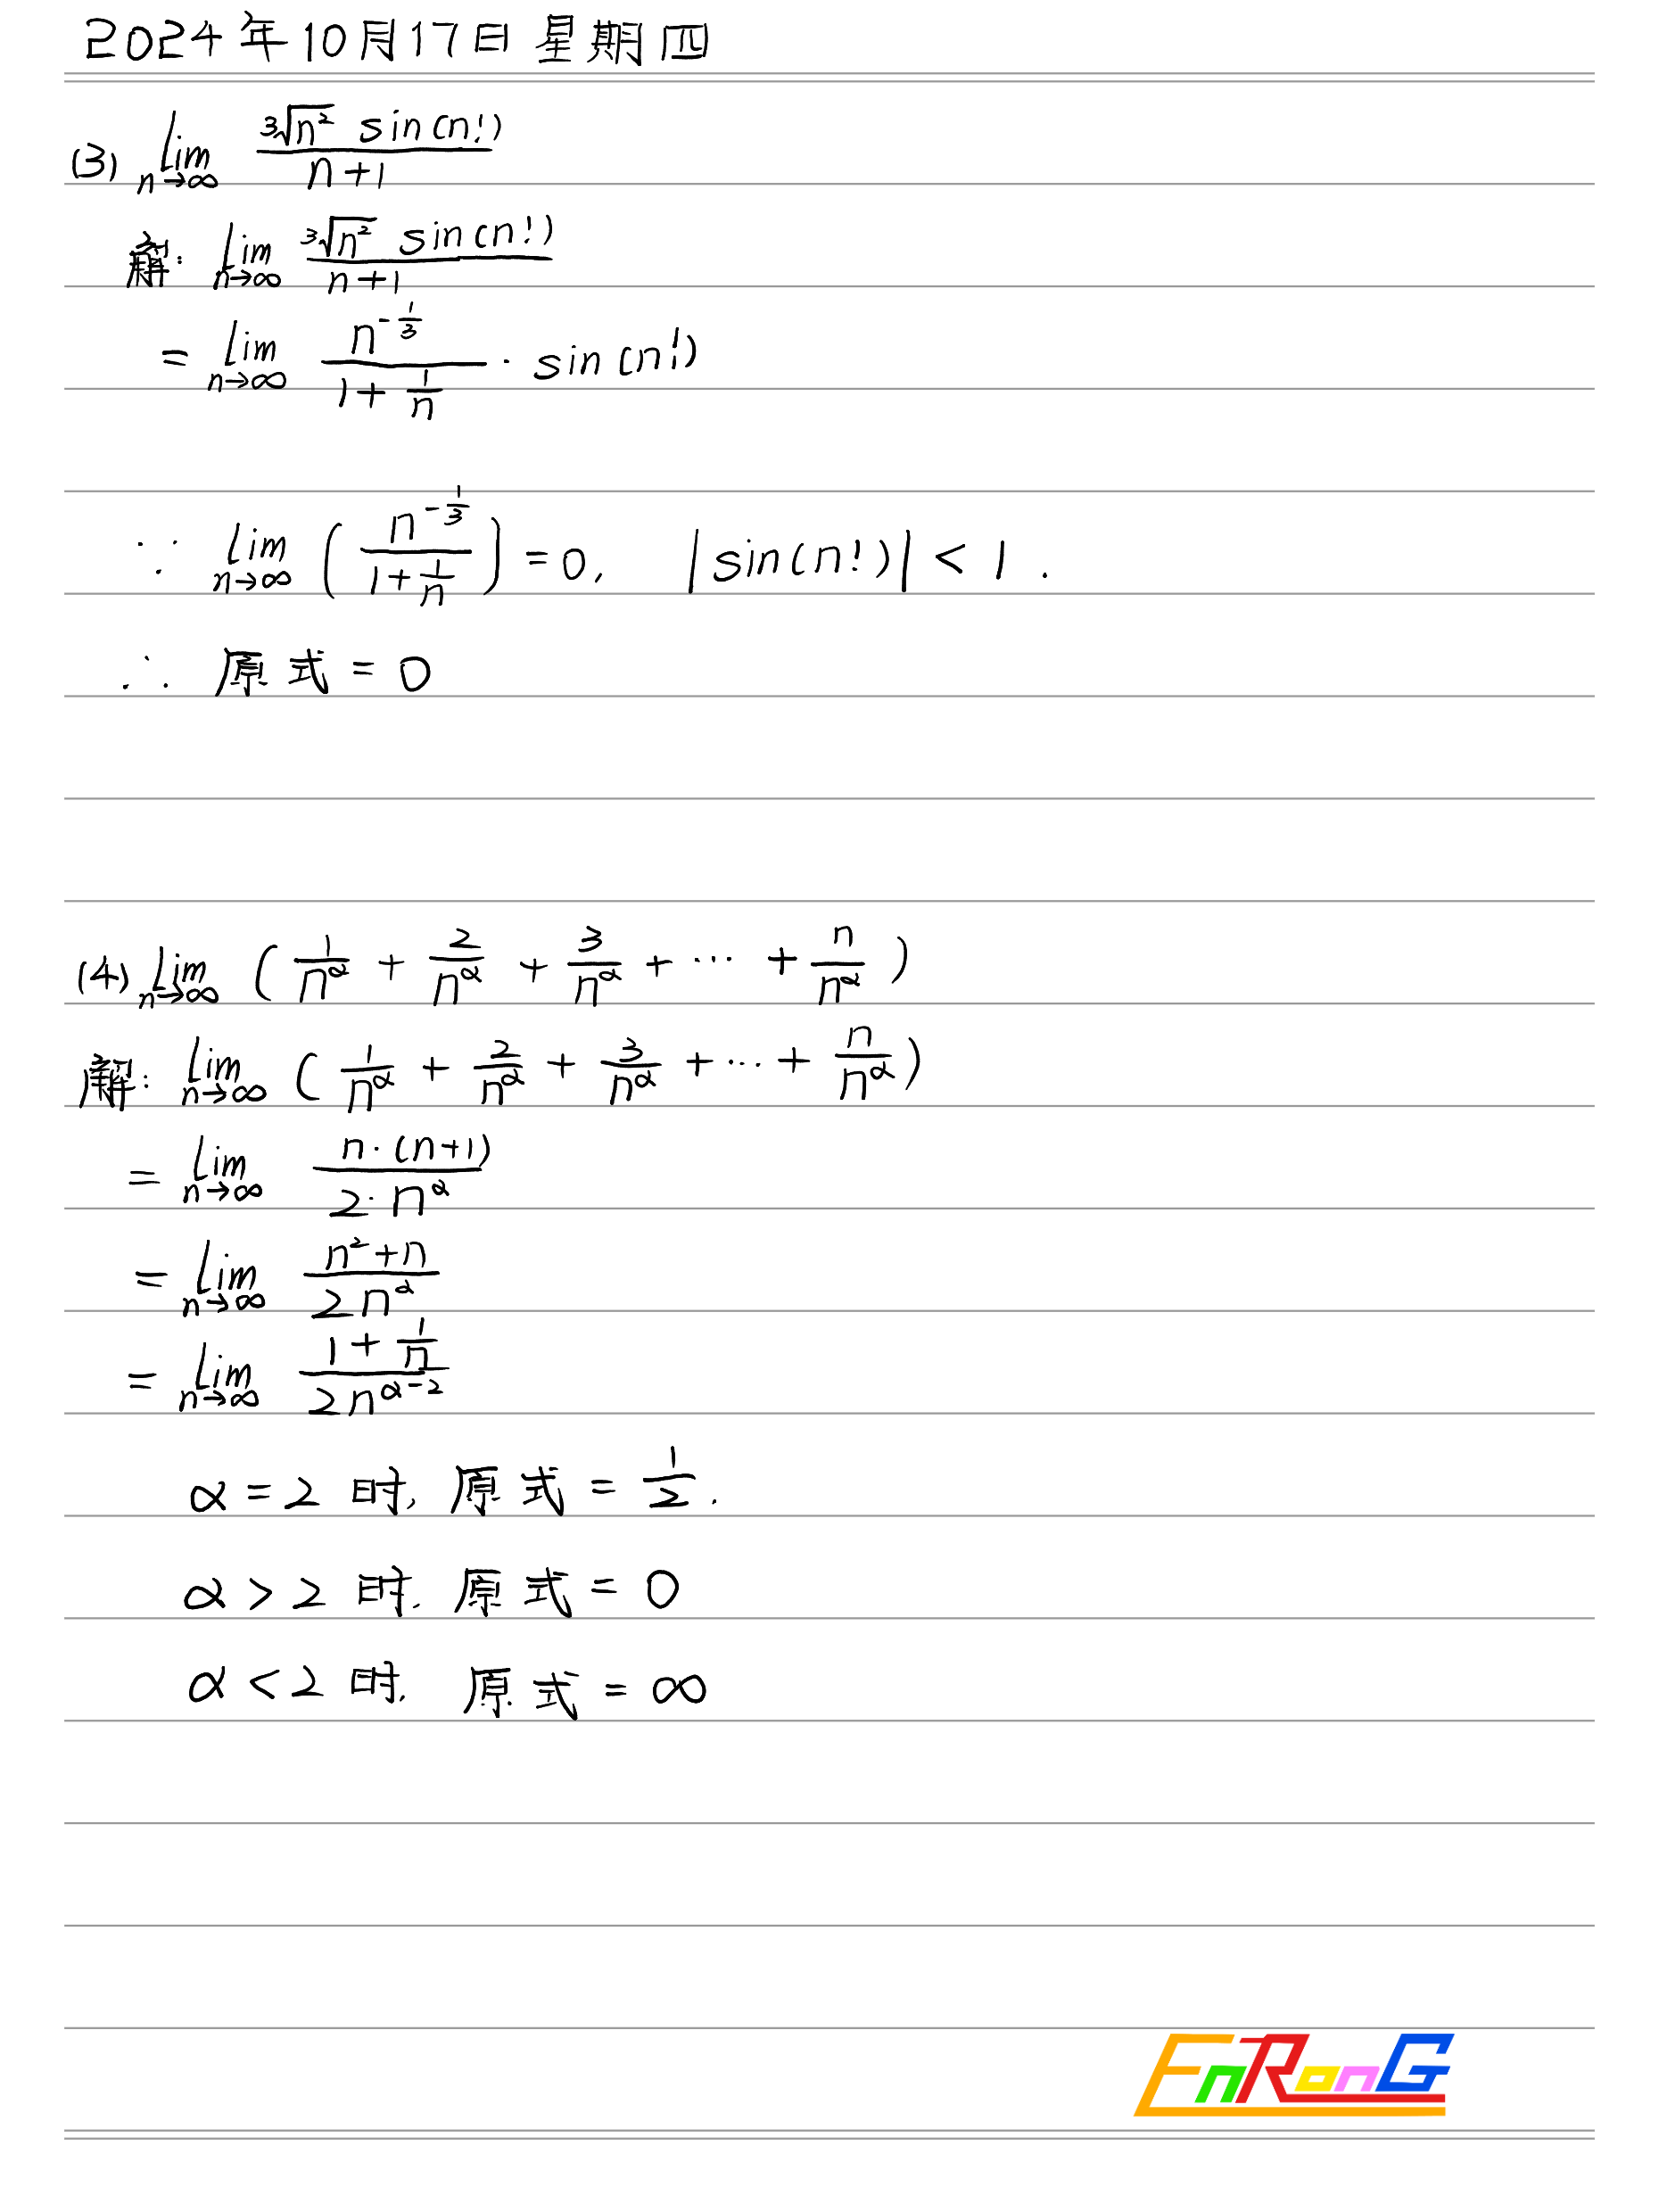 2024年10月17日 星期四
(3) lim n→∞ ∛n² sin(n!) / n+1
解: lim n→∞ ∛n² sin(n!) / n+1
= lim n→∞ n^(-1/3) / (1 + 1/n) · sin(n!)
∵ lim n→∞ ( n^(-1/3) / (1 + 1/n) ) = 0, |sin(n!)| < 1.
∴ 原式 = 0
(4) lim n→∞ ( 1/n^α + 2/n^α + 3/n^α + ⋯ + n/n^α )
解: lim n→∞ ( 1/n^α + 2/n^α + 3/n^α + ⋯ + n/n^α )
= lim n→∞ n·(n+1) / 2·n^α
= lim n→∞ n²+n / 2n^α
= lim n→∞ (1 + 1/n) / 2n^(α-2)
α = 2 时, 原式 = 1/2.
α > 2 时. 原式 = 0
α < 2 时. 原式 = ∞
EnRonG